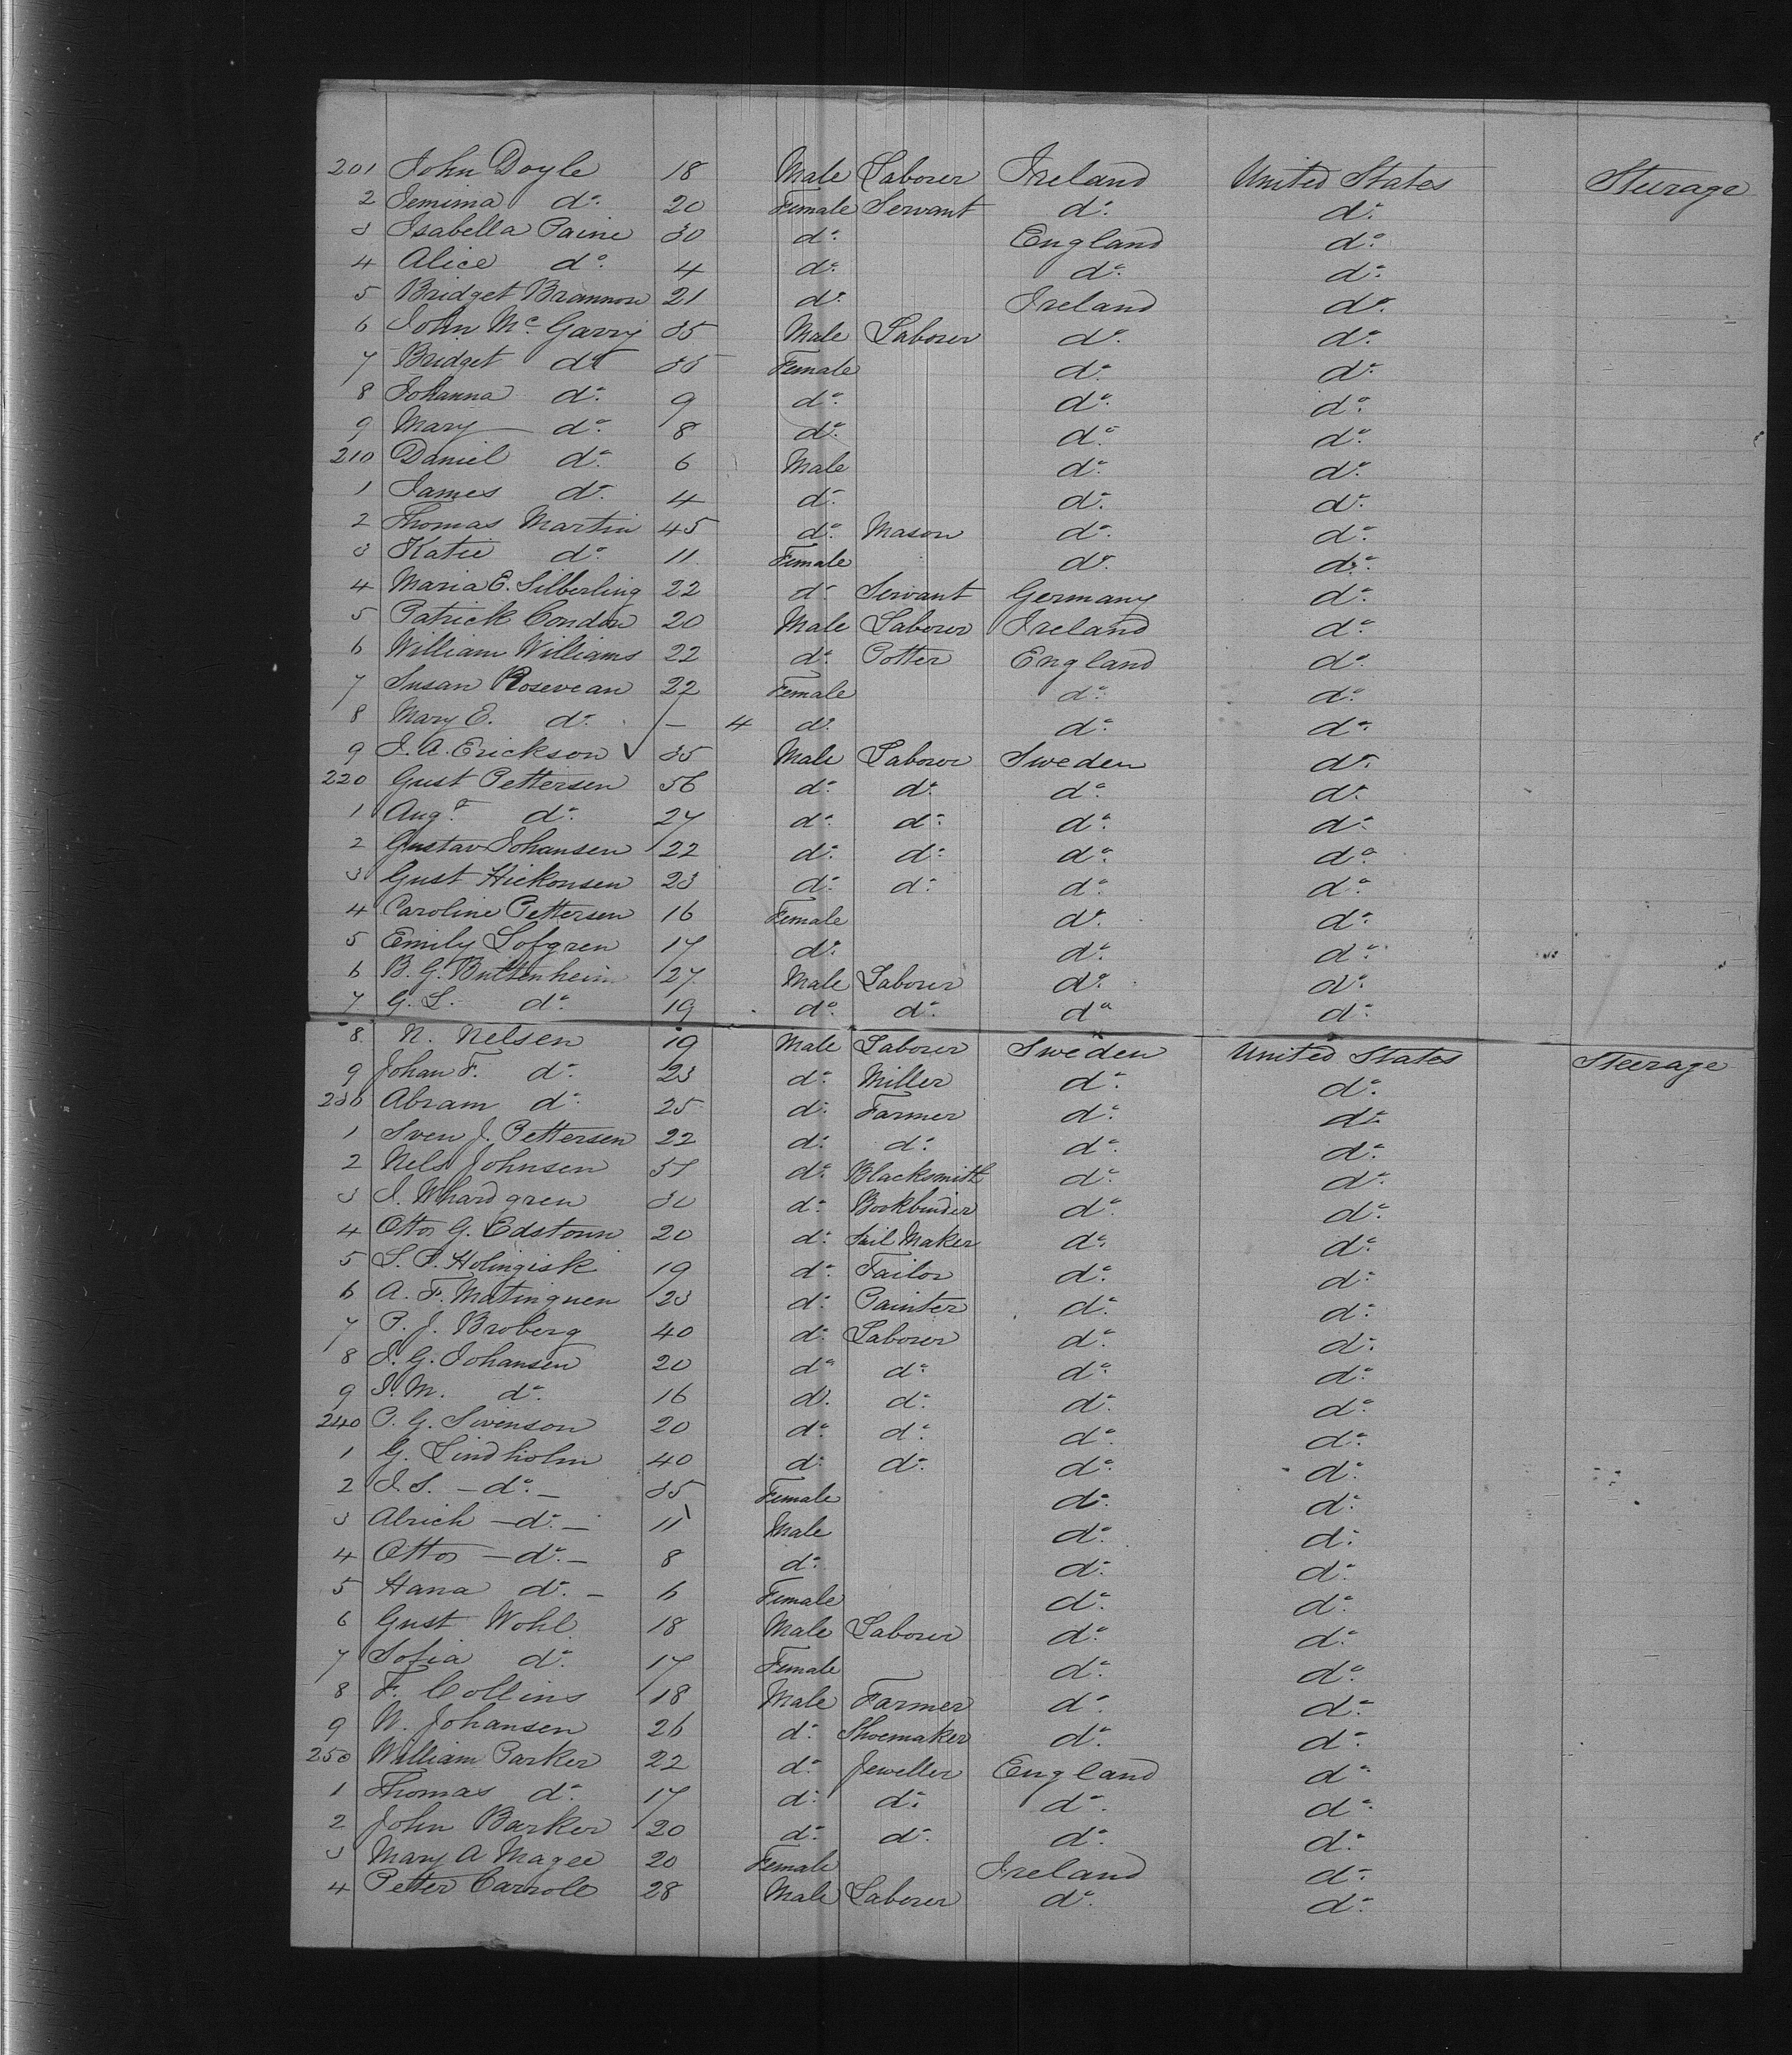 201 John Doyle 18 Male Laborer Ireland United States Steerage
2 Jemima do. 20 Female Servant do. do.
3 Isabella Paine 30 do. England do.
4 Alice do. 4 do. do. do.
5 Bridget Brannon 21 do. Ireland do.
6 John Mc. Garry 35 Male Laborer do. do.
7 Bridget do. 35 Female do. do.
8 Johanna do. 9 do. do. do.
9 Mary do. 8 do. do. do.
210 Daniel do. 6 Male do. do.
1 James do. 4 do. do. do.
2 Thomas Martin 45 do. Mason do. do.
3 Katie do. 11 Female do. do.
4 Maria E. Silberling 22 do. Servant Germany do.
5 Patrick Condon 20 Male Laborer Ireland do.
6 William Williams 22 do. Potter England do.
7 Susan Rosevean 22 Female do. do.
8 Mary E. do. – 4 do. do. do.
9 J. A. Erickson 35 Male Laborer Sweden do.
220 Gust Pettersen 56 do. do. do. do.
1 Aug. do. 27 do. do. do. do.
2 Gustav Johansen 22 do. do. do. do.
3 Gust Hickonsen 23 do. do. do. do.
4 Caroline Pettersen 16 Female do. do.
5 Emily Lofgren 17 do. do. do.
6 B. G. Buttenheim 27 Male Laborer do. do.
7 G. L. do. 19 do. do. do. do.
8 N. Nelsen 19 Male Laborer Sweden United States Steerage
9 Johan F. do. 23 do. Miller do. do.
230 Abram do. 25 do. Farmer do. do.
1 Sven J. Pettersen 22 do. do. do. do.
2 Nels Johnsen do. Blacksmith do. do.
3 J. Whardgren 30 do. Bookbinder do. do.
4 Otto G. Edstonn 20 do. Sail Maker do. do.
5 S. P. Holingisk 19 do. Tailor do. do.
6 A. F. Matinguen 23 do. Painter do. do.
7 P. J. Broberg 40 do. Laborer do. do.
8 J. G. Johansen 20 do. do. do. do.
9 S. M. do. 16 do. do. do. do.
240 P. G. Swenson 20 do. do. do. do.
1 G. Lindholm 40 do. do. do. do.
2 J. S. – do. – 35 Female do. do.
3 Alrich – do. – 11 Male do. do.
4 Otto – do. – 8 do. do. do.
5 Hana do. – 6 Female do. do.
6 Gust Wohl 18 Male Laborer do. do.
7 Sofia do. 17 Female do. do.
8 F. Collins 18 Male Farmer do. do.
9 N. Johansen 26 do. Shoemaker do. do.
250 William Parker 22 do. Jeweller England do.
1 Thomas do. 17 do. do. do. do.
2 John Barker 20 do. do. do. do.
3 Mary A Magee 20 Female Ireland do.
4 Petter Carrole 28 Male Laborer do. do.